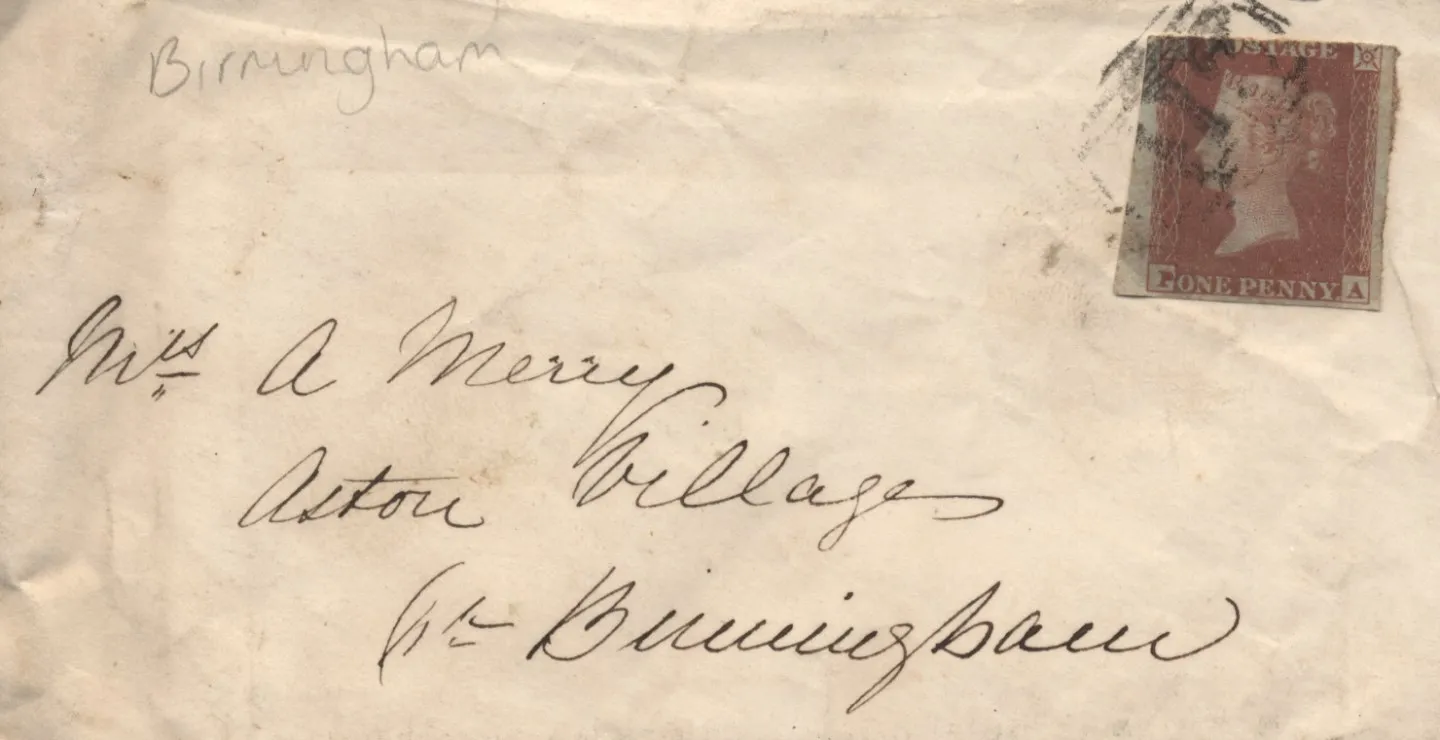 Birmingham
POSTAGE
ONE PENNY
A
Mrs A Merry
Aston Village
Nr Birmingham